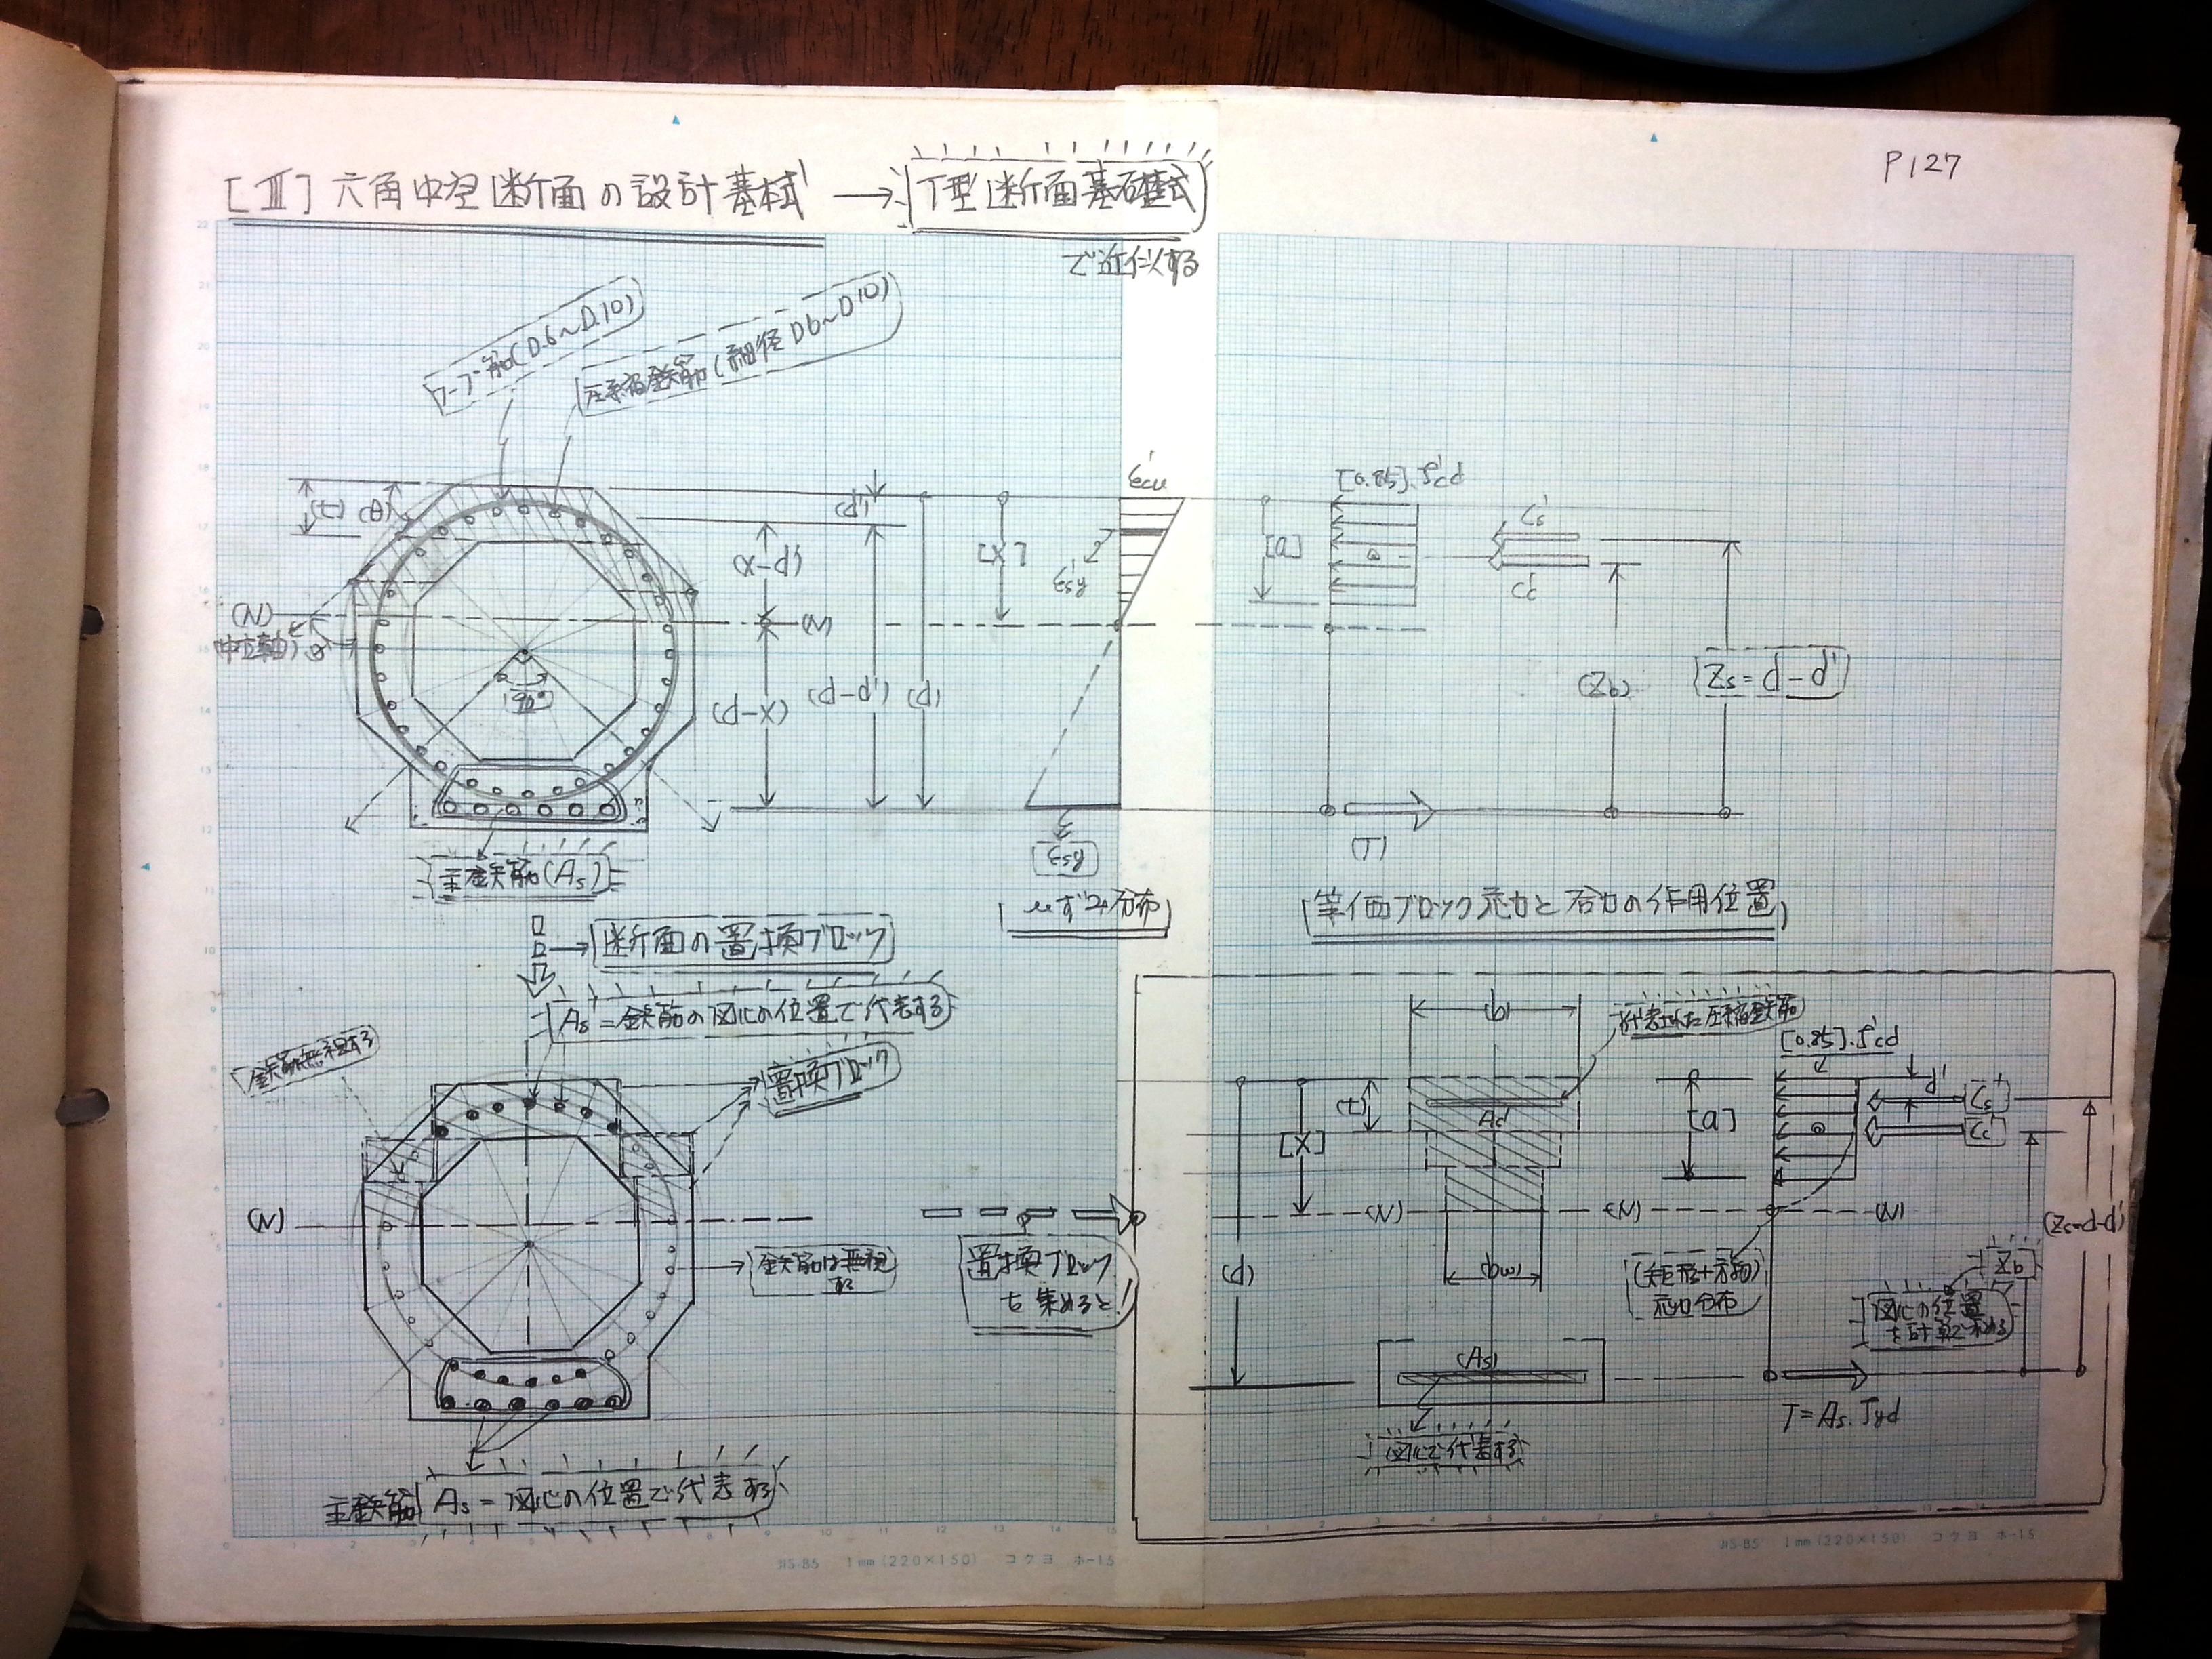 P127
[Ⅲ] 六角中空断面の設計基本式 → T型断面基礎式
で近似する
フープ筋(D6~D10)
圧縮鉄筋(細径D6~D10)
(t) (θ)
(N)
(中立軸)
90°
主鉄筋(As)
(d')
(x-d')
(N)
(d-x)
(d-d')
(d)
[X]
ε'cu
ε'sy
εsy
ひずみ分布
[a]
[0.85]·f'cd
C's
C'c
(Zb)
Zs=d-d'
(T)
等価ブロック応力と合力の作用位置
断面の置換ブロック
A's=鉄筋の図心の位置で代表する
鉄筋無視する
置換ブロック
(N)
鉄筋は無視
する
置換ブロック
を集めると!
主鉄筋 As=図心の位置で代表する
(b)
代表させた圧縮鉄筋
[0.85]·f'cd
(t)
Ac'
[X]
[a]
d'
C's
C'c
(N)
(N)
(N)
(Zs=d-d')
(d)
(bw)
(矩形+放物)
応力分布
Zb
図心の位置
を計算で求める
(As)
図心で代表する
T=As·fyd
JIS-B5 1mm(220×150) コクヨ ホ-15
JIS-B5 1mm(220×150) コクヨ ホ-15